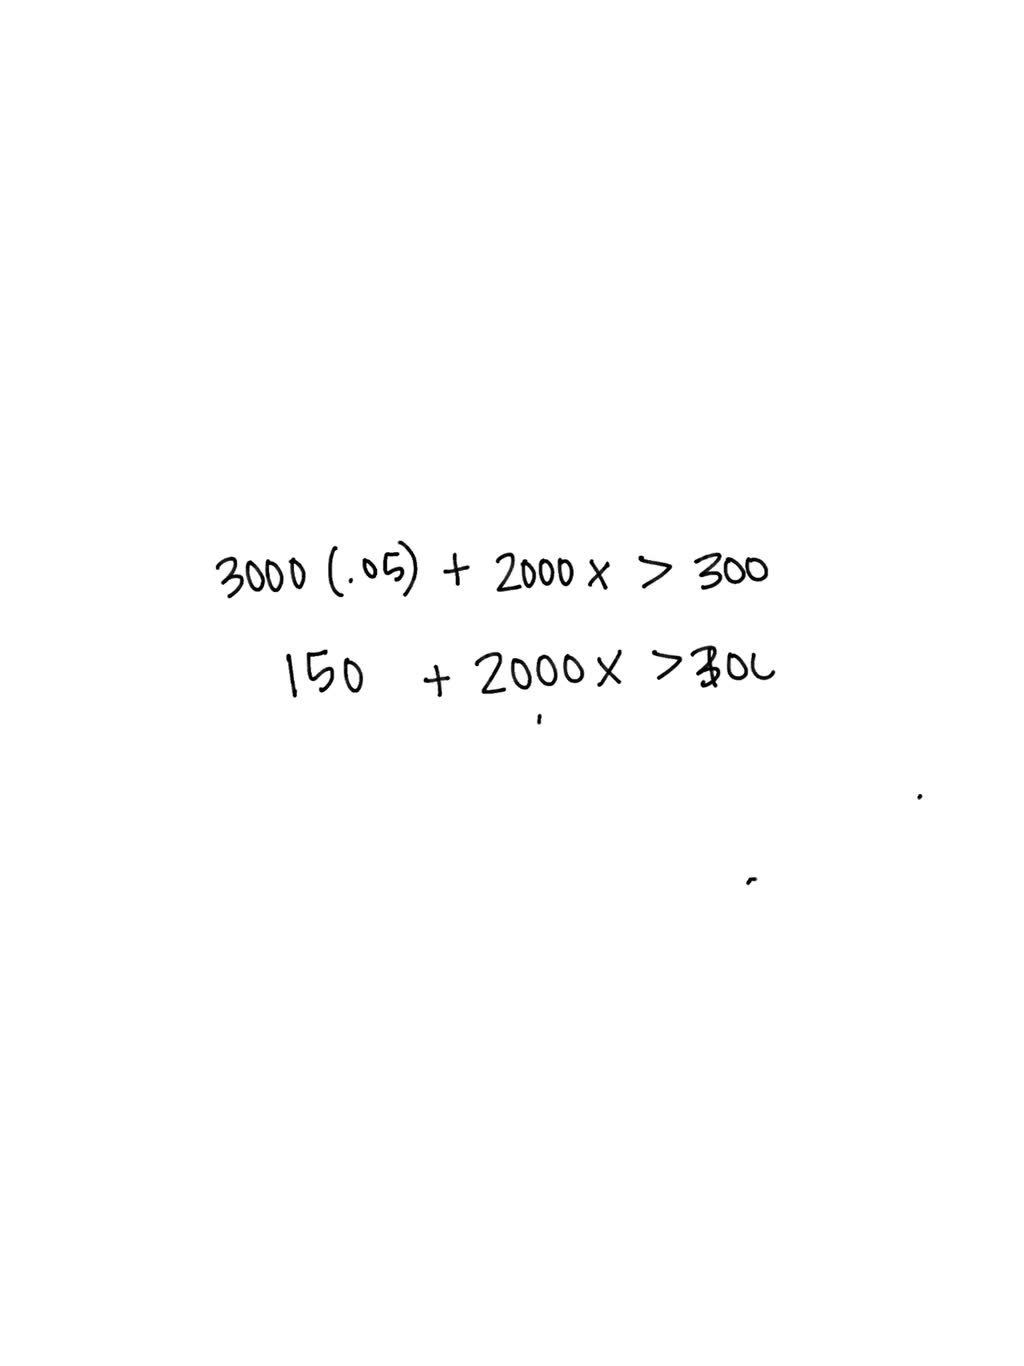 3000 (.05) + 2000 x > 300
150 + 2000 x > 300